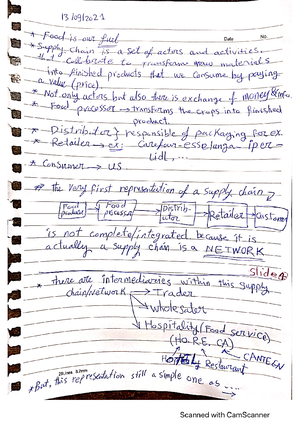 13/09/2021
Date No.
* Food is our fuel
* Supply chain is a set of actors and activities,
that collibrate to transforme raw materials
into finished products that we consume by paying
a value (price).
* Not only actors but also there is exchange of money & info
* Food processor → transforms the crops into finished
product.
* Distributor } responsible of packaging for ex.
* Retailer → ex: Carefour - esselunga - iper -
Lidl, ...
* Consumer → US
# The very first representation of a supply chain
Food producer → Food processor → Distributor → Retailer → Customer
is not complete/integrated because it is
actually a supply chain is a NETWORK
slide 4
* there are intermediaries within this supply
chain/network → Trader
→ wholesaler
→ Hospitality (Food service)
(HO.RE.CA)
HOTEL Restaurant CANTEEN
* But, this representation still a simple one as ....
Scanned with CamScanner